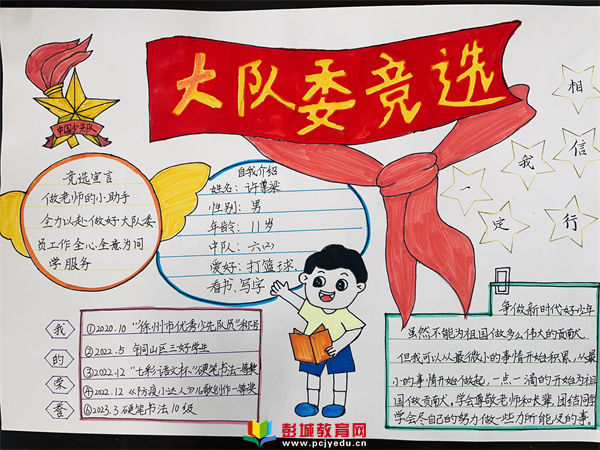 大队委竞选
中国少先队
相
信
我
一
定
行
竞选宣言
做老师的小助手
全力以赴做好大队委
员工作全心全意为同
学服务
自我介绍
姓名：许
性别：男
年龄：11岁
中队：六(2)
爱好：打篮球、
看书、写字
我的荣誉
①2020.10 "徐州市优秀少先队员"称号
②2022.5 铜山区三好学生
③2022.12 "七彩语文杯"硬笔书法一等奖
④2022.12 《防疫小达人》儿歌创作一等奖
⑤2023.3 硬笔书法10级
争做新时代好少年
虽然不能为祖国做多么伟大的贡献大
但我可以从最微小的事情开始积累，从最
小的事情开始做起，一点一滴的开始为祖
国做贡献大。学会尊敬老师和长辈，团结同学
学会尽自己的努力做一些力所能及的事。
彭城教育网
www.pcjyedu.cn